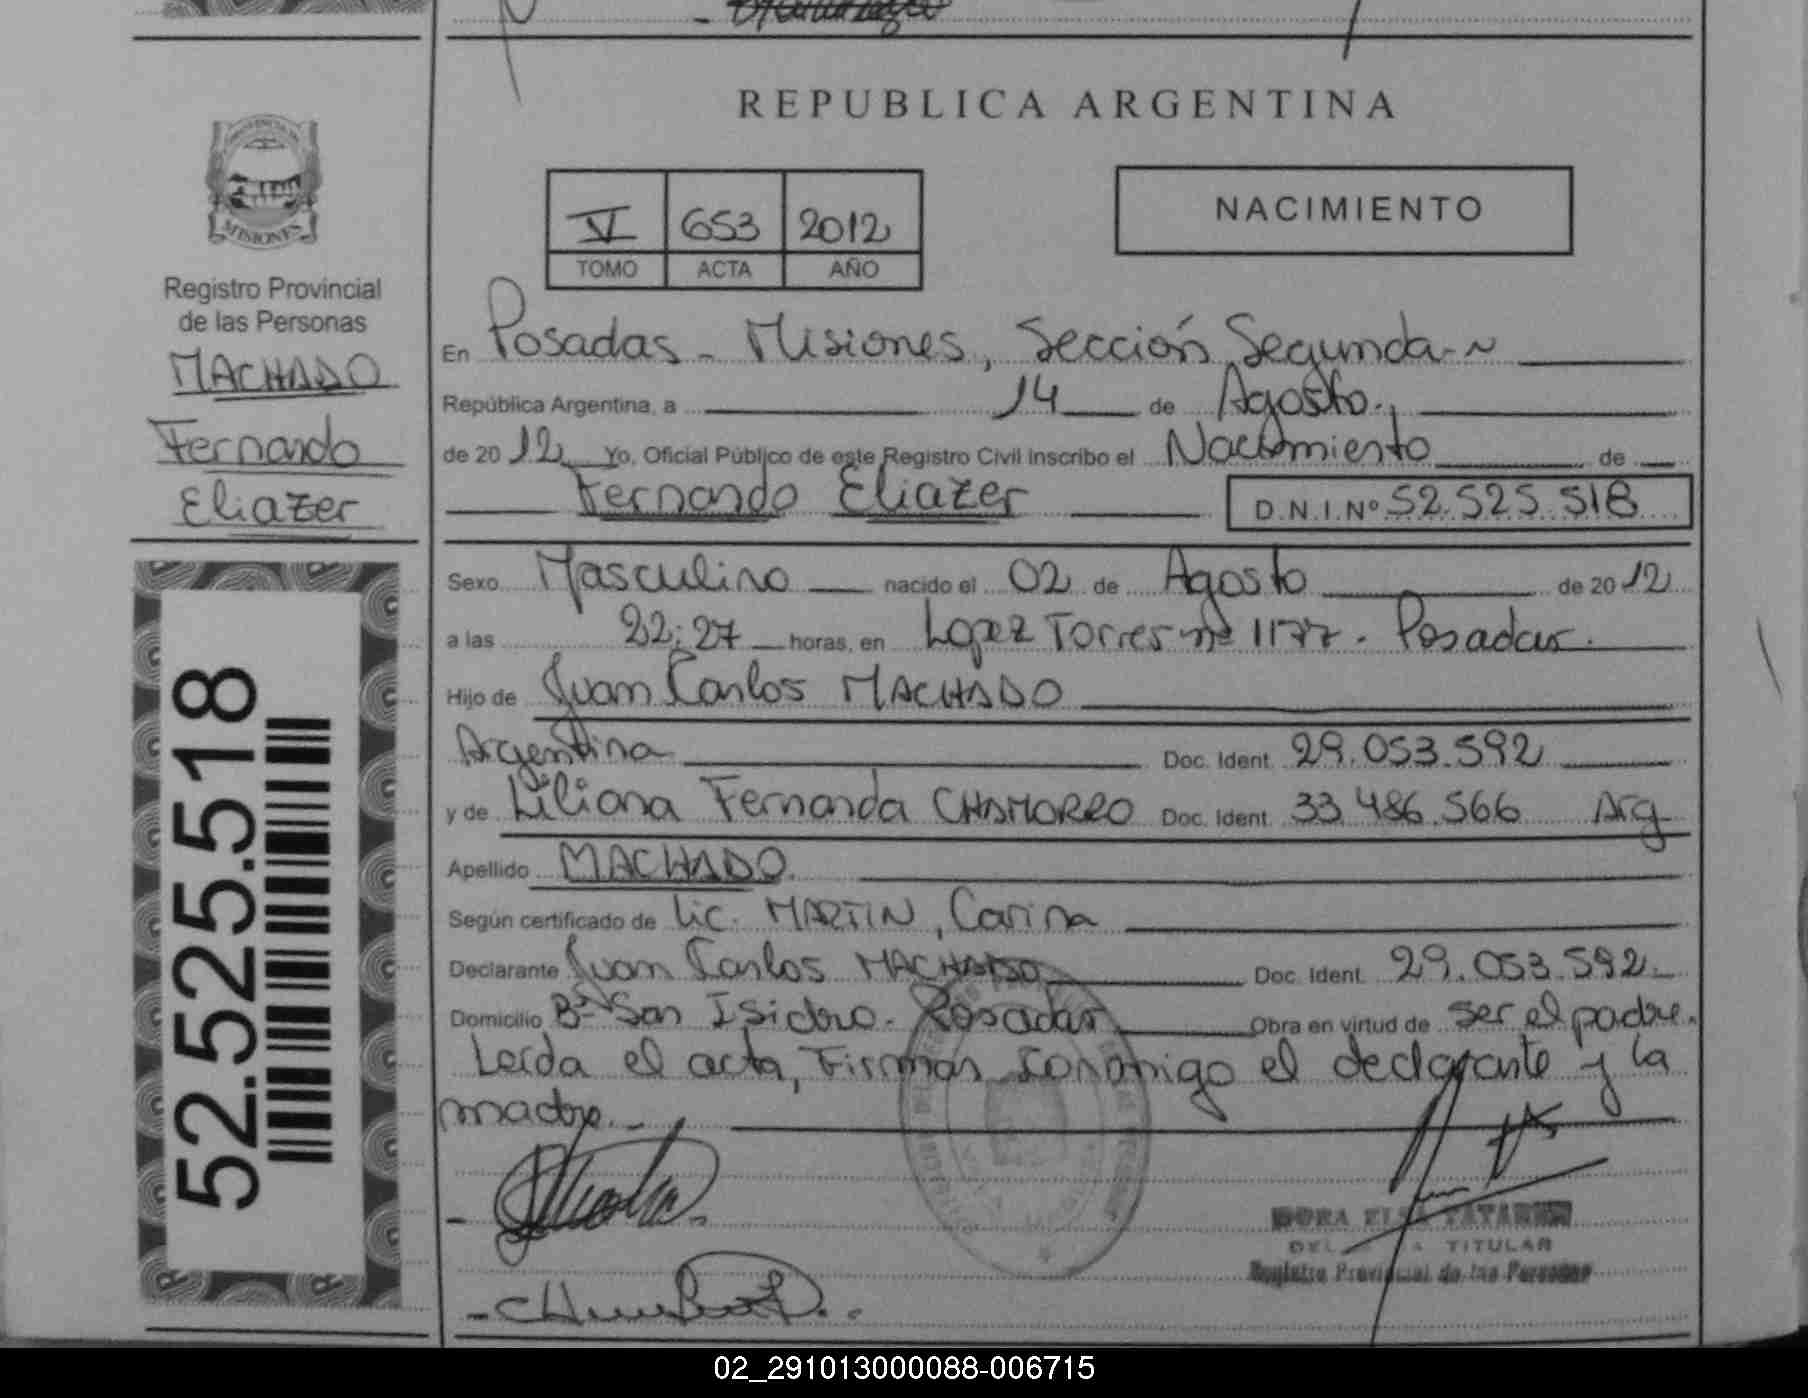 REPUBLICA ARGENTINA
PROVINCIA DE
MISIONES
Registro Provincial
de las Personas
MACHADO
Fernando
Eliazer
52.525.518
V 653 2012
TOMO ACTA AÑO
NACIMIENTO
En Posadas - Misiones, Sección Segunda.~
República Argentina, a 14 de Agosto.,
de 2012 Yo, Oficial Público de este Registro Civil Inscribo el Nacimiento de
Fernando Eliazer D.N.I.Nº 52.525.518
Sexo Masculino nacido el 02 de Agosto de 2012
a las 22:27 horas, en Lopez Torres nº 1177. Posadas.
Hijo de Juan Carlos MACHADO
Argentina Doc. Ident. 29.053.592
y de Liliana Fernanda CHAMORRO Doc. Ident. 33.486.566 Arg
Apellido MACHADO.
Según certificado de Lic. MARTIN, Carina
Declarante Juan Carlos MACHADO Doc. Ident. 29.053.592.
Domicilio Bº San Isidro. Posadas Obra en virtud de ser el padre.
Leída el acta, Firman conmigo el declarante y la
madre.-
TITULAR
Registro Provincial de las Personas
02_291013000088-006715